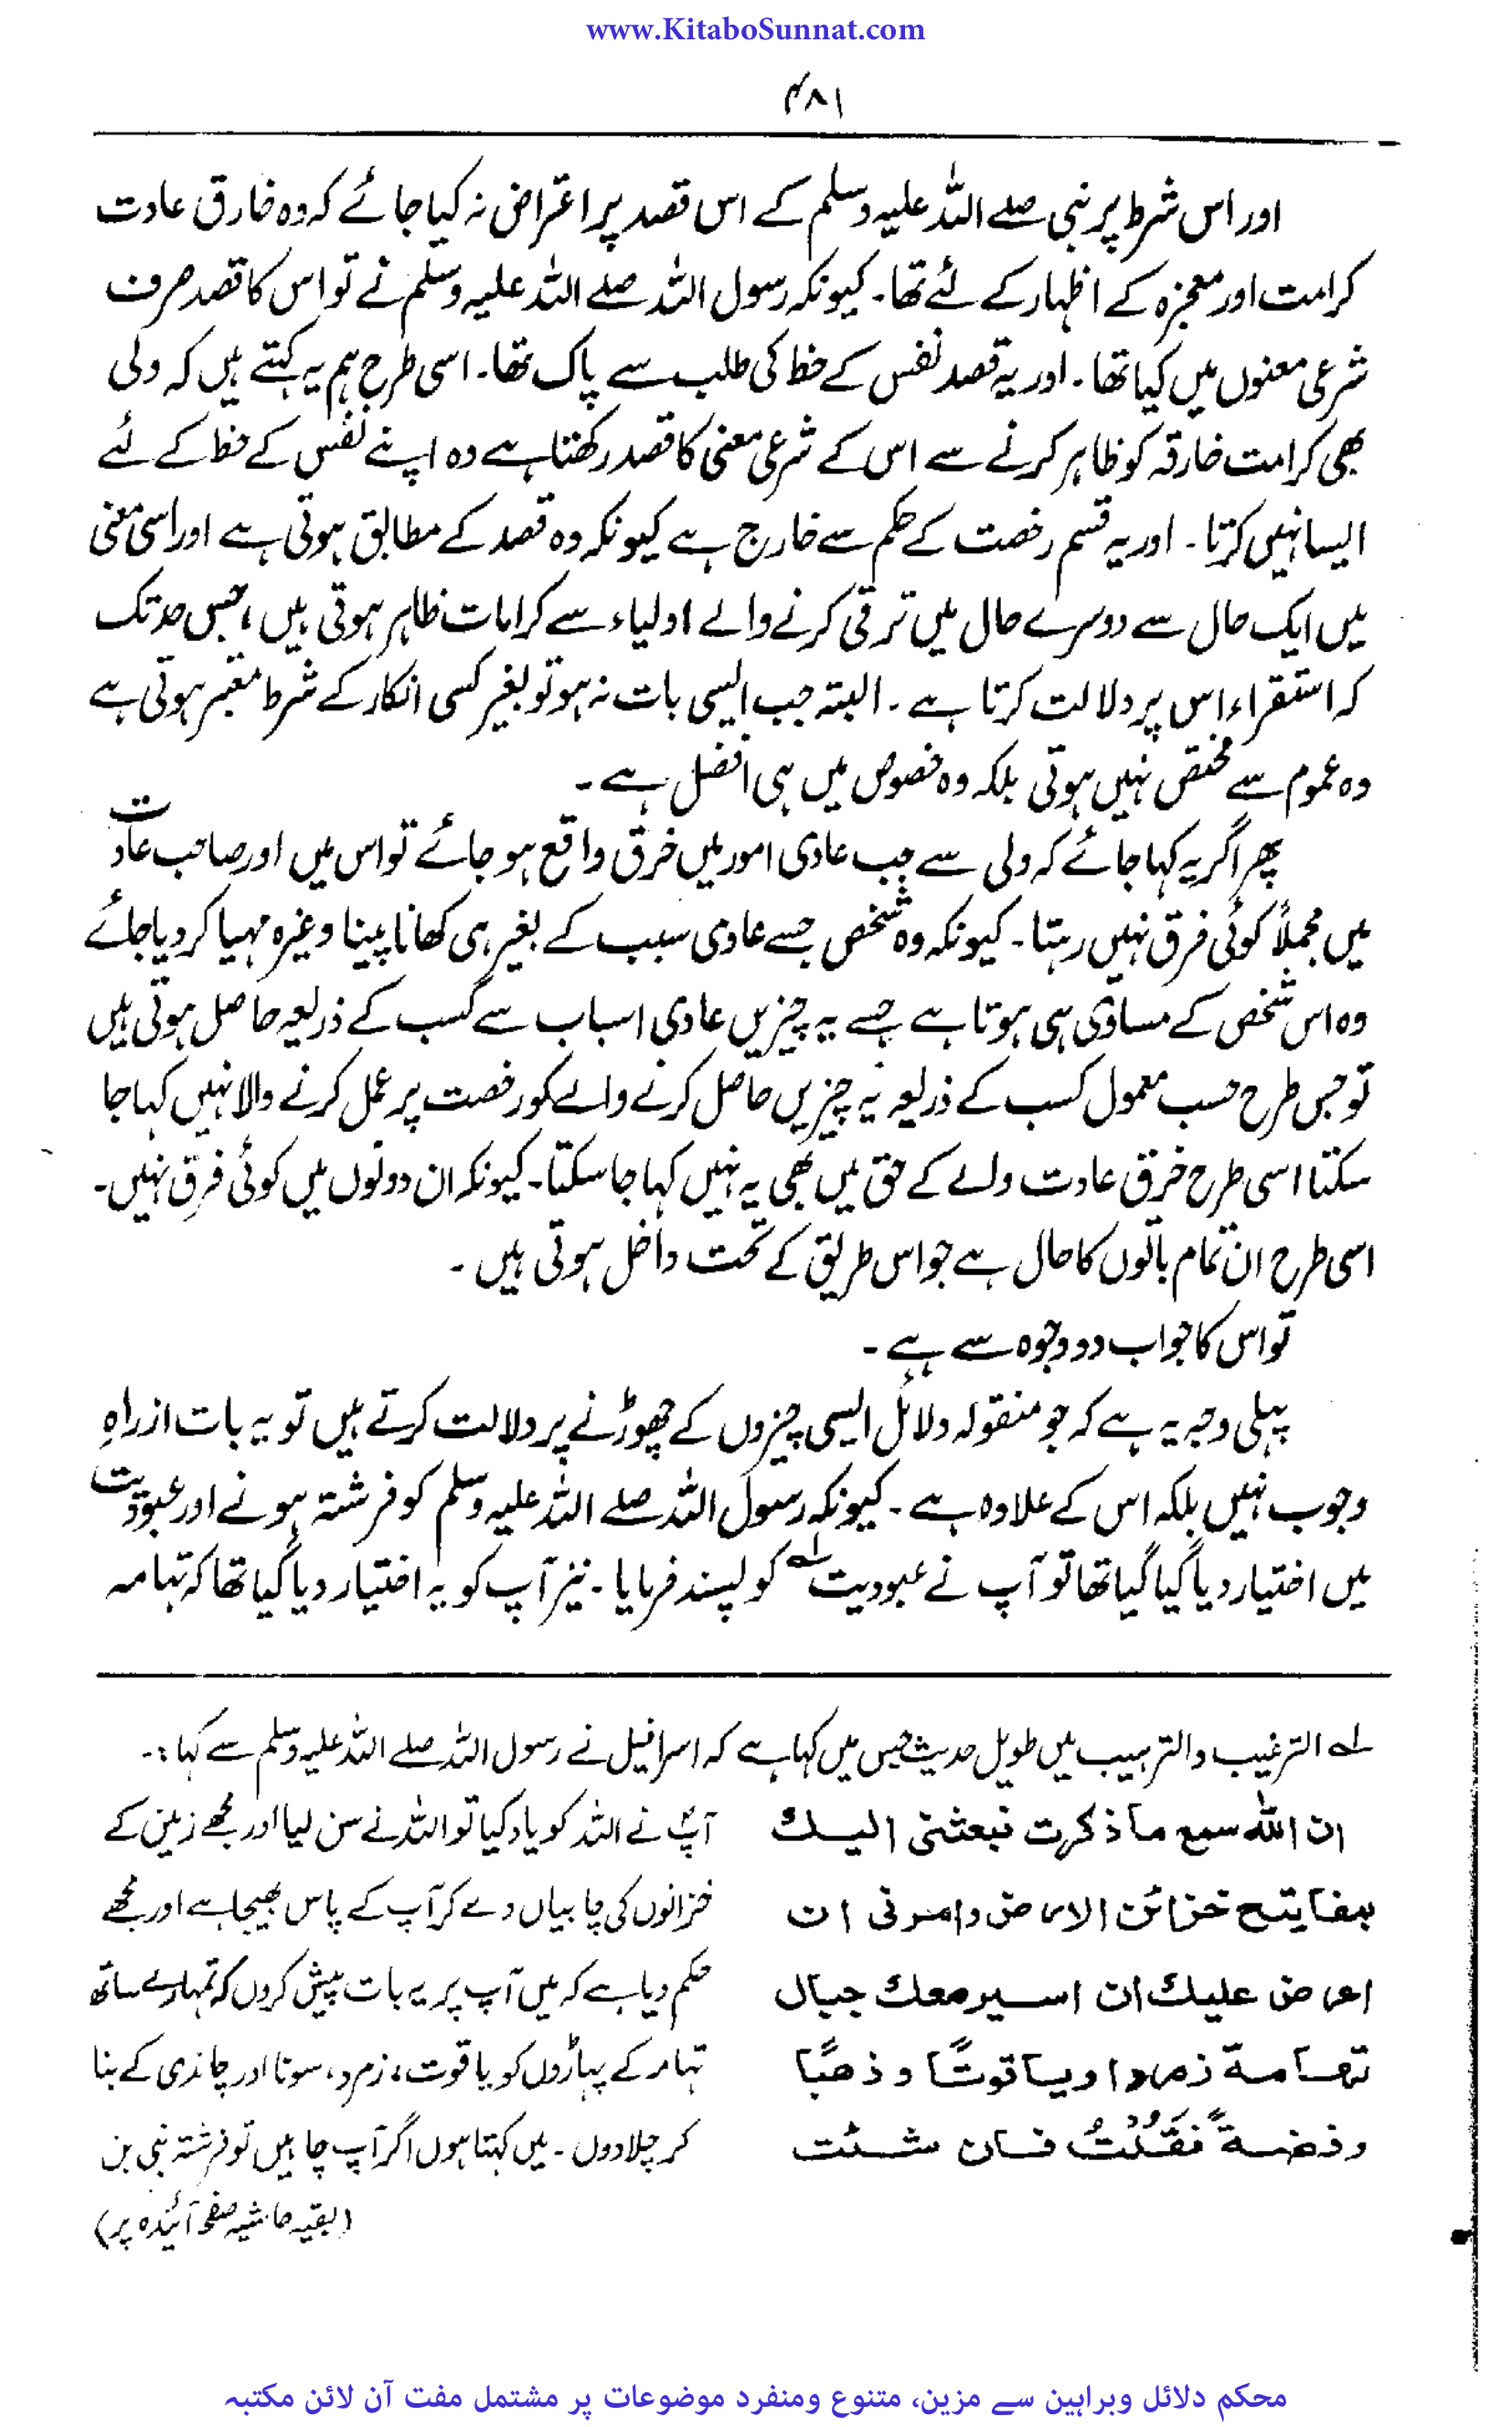 www.KitaboSunnat.com
۴۸۱
اور اس شرط پر نبی صلے اللہ علیہ وسلم کے اس قصد پر اعتراض نہ کیا جائے کہ وہ خارق عادت
کرامت اور معجزہ کے اظہار کے لئے تھا۔ کیونکہ رسول اللہ صلے اللہ علیہ وسلم نے تو اس کا قصد صرف
شرعی معنوں میں کیا تھا۔ اور یہ قصد نفس کے حظ کی طلب سے پاک تھا۔ اسی طرح ہم یہ کہتے ہیں کہ ولی
بھی کرامت خارقہ کو ظاہر کرنے سے اس کے شرعی معنی کا قصد رکھتا ہے وہ اپنے نفس کے حظ کے لئے
ایسا نہیں کرتا۔ اور یہ قسم رخصت کے حکم سے خارج ہے کیونکہ وہ قصد کے مطابق ہوتی ہے اور اسی معنی
میں ایک حال سے دوسرے حال میں ترقی کرنے والے اولیاء سے کرامات ظاہر ہوتی ہیں، جس حد تک
کہ استقراء اس پر دلالت کرتا ہے۔ البتہ جب ایسی بات نہ ہو تو بغیر کسی انکار کے شرط معتبر ہوتی ہے
وہ عموم سے مختص نہیں ہوتی بلکہ وہ خصوص میں ہی افضل ہے۔
پھر اگر یہ کہا جائے کہ ولی سے جب عادی امور میں خرق واقع ہو جائے تو اس میں اور صاحب عادت
میں مجملاً کوئی فرق نہیں رہتا۔ کیونکہ وہ شخص جسے عادی سبب کے بغیر ہی کھانا پینا وغیرہ مہیا کر دیا جائے
وہ اس شخص کے مساوی ہی ہوتا ہے جسے یہ چیزیں عادی اسباب سے کسب کے ذریعہ حاصل ہوتی ہیں
تو جس طرح حسب معمول کسب کے ذریعہ یہ چیزیں حاصل کرنے والے کو رخصت پر عمل کرنے والا نہیں کہا جا
سکتا اسی طرح خرق عادت والے کے حق میں بھی یہ نہیں کہا جا سکتا۔ کیونکہ ان دونوں میں کوئی فرق نہیں۔
اسی طرح ان تمام باتوں کا حال ہے جو اس طریق کے تحت داخل ہوتی ہیں۔
تو اس کا جواب دو وجوہ سے ہے۔
پہلی وجہ یہ ہے کہ جو منقولہ دلائل ایسی چیزوں کے چھوڑنے پر دلالت کرتے ہیں تو یہ بات از راہِ
وجوب نہیں بلکہ اس کے علاوہ ہے۔ کیونکہ رسول اللہ صلے اللہ علیہ وسلم کو فرشتہ ہونے اور عبودیت
میں اختیار دیا گیا گیا تھا تو آپ نے عبودیت لہ کو پسند فرمایا۔ نیز آپ کو یہ اختیار دیا گیا تھا کہ تہامہ
لہ الترغیب والترہیب میں طویل حدیث جس میں کہا ہے کہ اسرافیل نے رسول اللہ صلے اللہ علیہ وسلم سے کہا:۔
ان الله سمع ما ذكرت فبعثنى اليك
بمفاتيح خزائن الارض وامرنى ان
اعرض عليك ان اسير معك جبال
تهامة زمردا وياقوتًا وذهبًا
وفضةً فقلتُ فان شئت
آپؐ نے اللہ کو یاد کیا تو اللہ نے سن لیا اور مجھے زمین کے
خزانوں کی چابیاں دے کر آپ کے پاس بھیجا ہے اور مجھے
حکم دیا ہے کہ میں آپ پر یہ بات پیش کروں کہ تمہارے ساتھ
تہامہ کے پہاڑوں کو یاقوت، زمرد، سونا اور چاندی کے بنا
کر چلا دوں۔ میں کہتا ہوں اگر آپ چاہیں تو فرشتہ نبی بن
(بقیہ حاشیہ صفحہ آئندہ پر)
محکم دلائل وبراہین سے مزین، متنوع ومنفرد موضوعات پر مشتمل مفت آن لائن مکتبہ